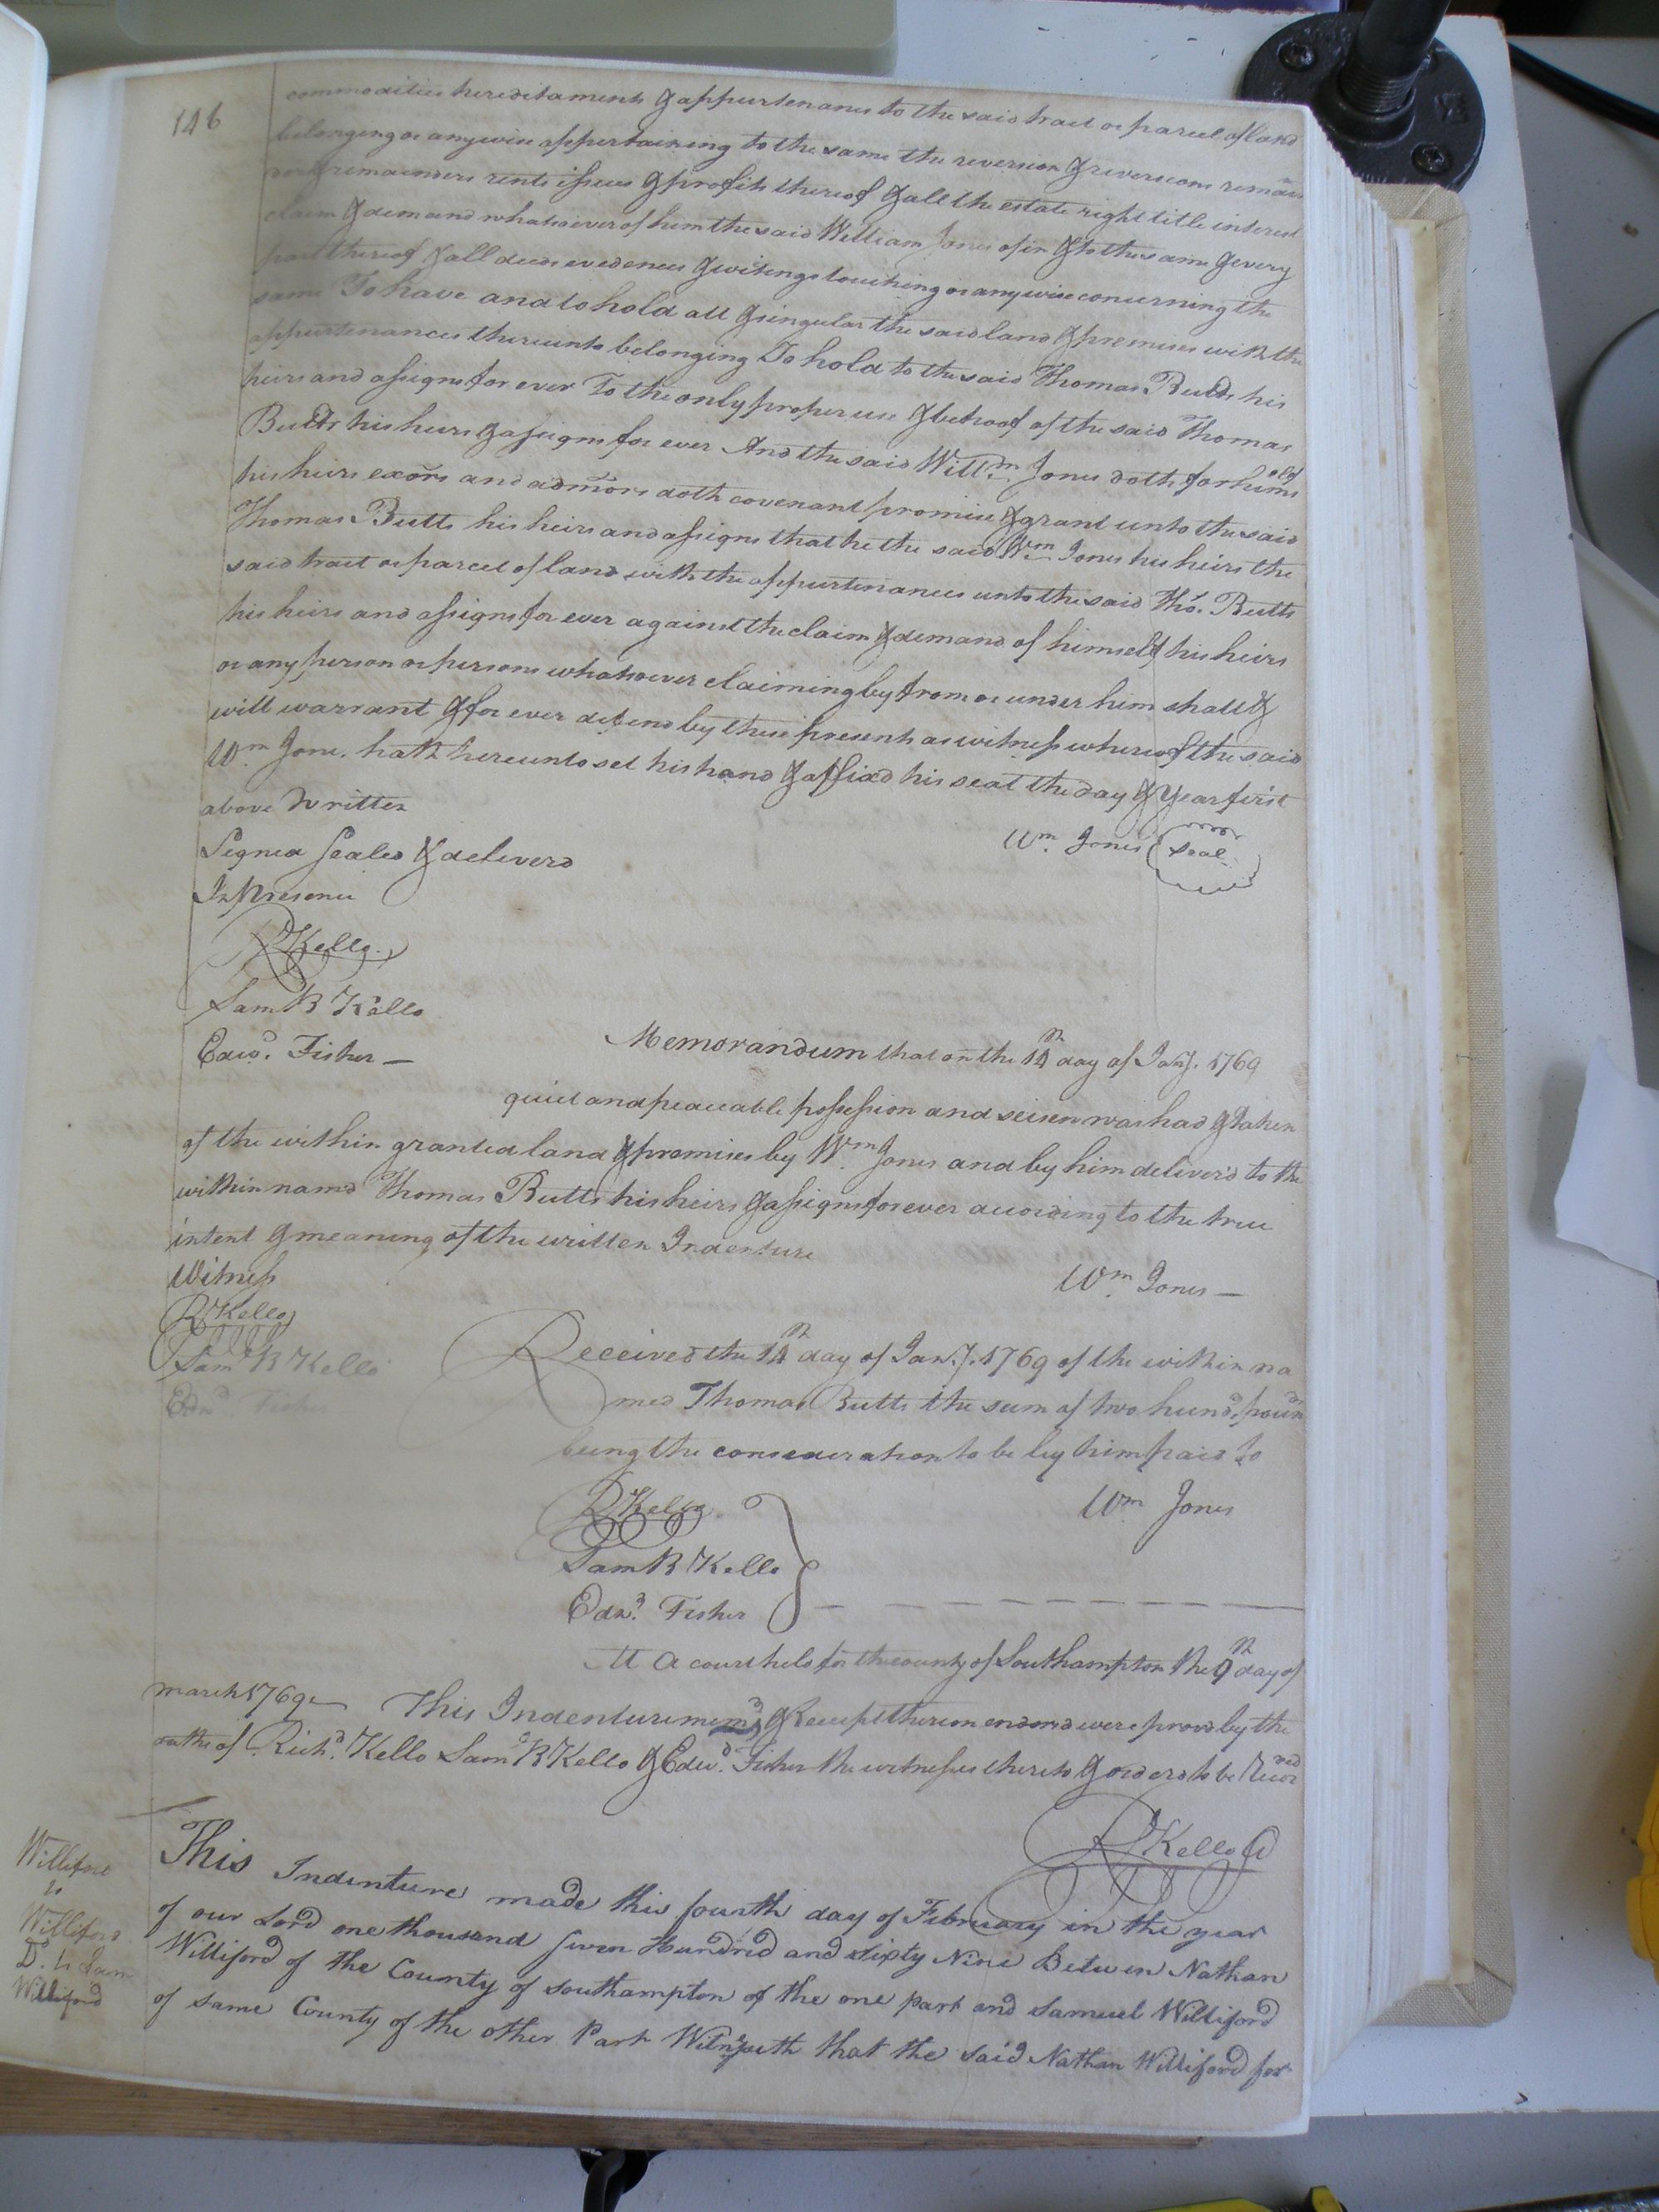 146
commodities hereditaments & appurtenances to the said tract or parcel of land
belonging or anywise appertaining to the same the reversion & reversions remain
remainders rents issues & profits thereof & all the estate right title interest
claim & demand whatsoever of him the said William Jones of in & to the same & every
part thereof & all deeds evedences & writings touching or anywise concerning the
same To have and to hold all & singular the said land & premises with the
appurtenances thereunto belonging To hold to the said Thomas Butts his
heirs and assigns for ever To the only proper use & behoof of the said Thomas
Butts his heirs & assigns for ever And the said Willm. Jones doth for himself
his heirs exors and admors doth covenant promise & grant unto the said
Thomas Butts his heirs and assigns that he the said Wm. Jones his heirs the
said tract or parcel of land with the appurtenances unto the said Thos. Butts
his heirs and assigns for ever against the claim & demand of himself his heirs
or any person or persons whatsoever claiming by from or under him shall &
will warrant & for ever defend by these presents as witness whereof the said
Wm. Jones hath hereunto set his hand & affixd his seal the day & year first
above written
Signed Sealed & deliverd
Wm. Jones Seal
In Presence
R Kello
Saml B Kello
Edwd. Fisher —
Memorandum that on the 14th day of Jany. 1769
quiet and peaceable possession and seisen was had & taken
of the within granted land & premises by Wm. Jones and by him deliver'd to the
within namd Thomas Butts his heirs & assigns forever according to the true
intent & meaning of the written Indenture
Witness
Wm. Jones —
R Kello
Saml B Kello
Edwd Fisher
Received the 14th day of Jany. 1769 of the within na
med Thomas Butts the sum of two hundd. pounds
being the consideration to be by him paid to
R Kello
Wm Jones
Saml B Kello
Edwd. Fisher
At a court held for the county of Southampton the 9th day of
march 1769 This Indenture memd & Receipt thereon endorsd were provd by the
oaths of Richd. Kello Saml B Kello & Edwd. Fisher the witnesses thereto & orderd to be Recor
R Kello
Williford
to
Williford
Do. to Sam
Williford
This Indenture made this fourth day of February in the year
of our Lord one thousand seven Hundred and sixty Nine Between Nathan
Williford of the County of southampton of the one part and Samuel Williford
of same County of the other Part Witnesseth that the said Nathan Williford for